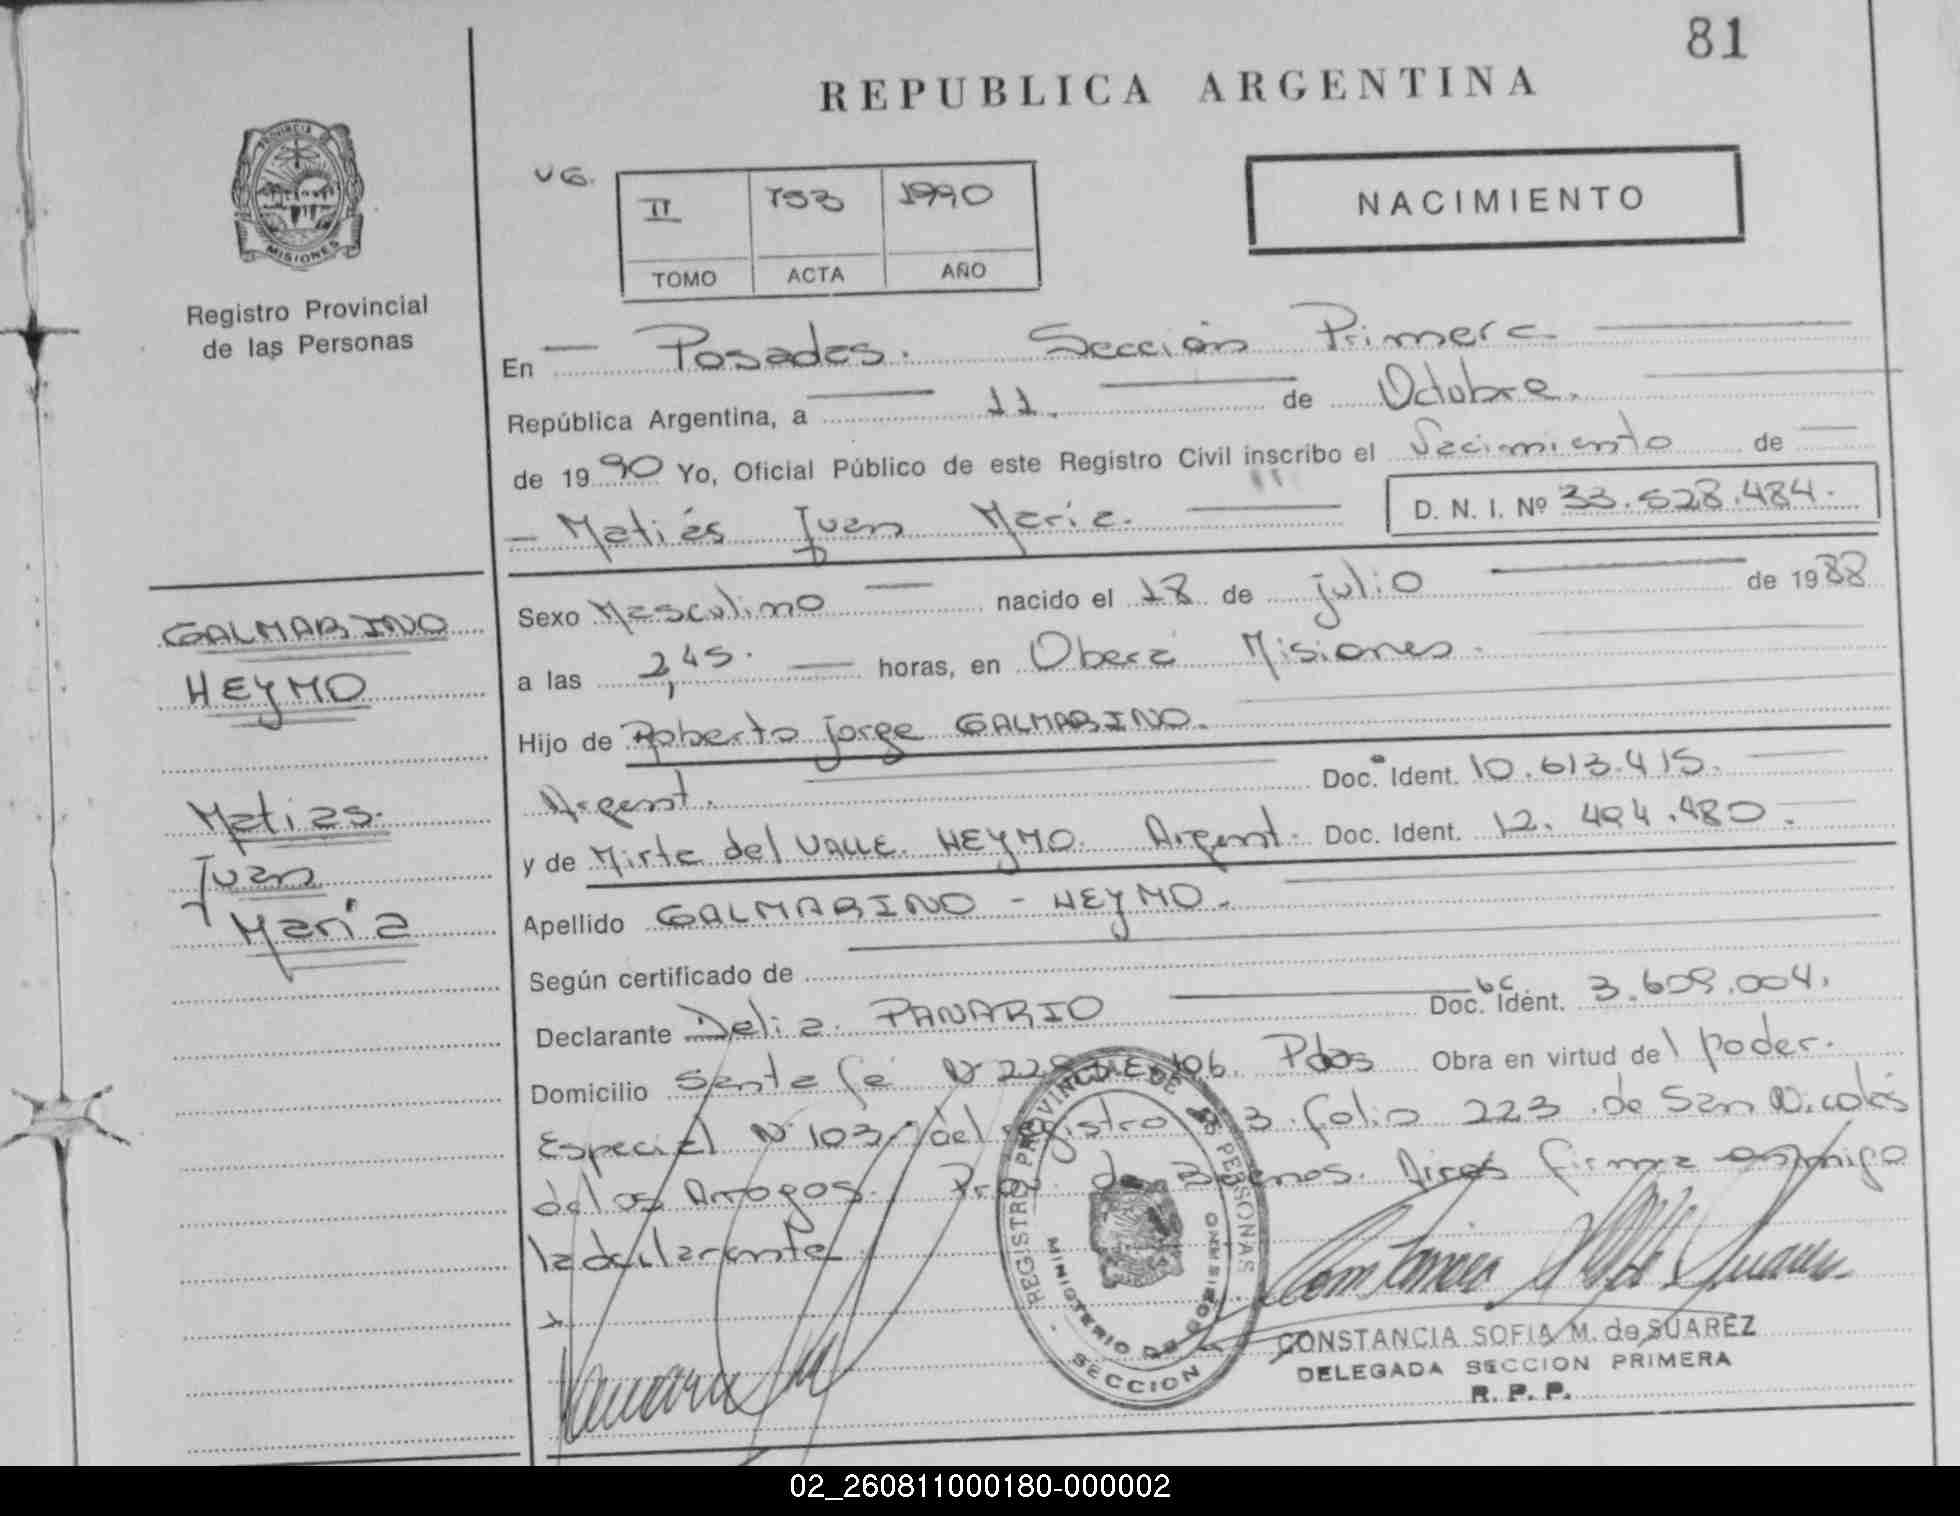 81
REPUBLICA ARGENTINA
PROVINCIA DE
MISIONES
Registro Provincial
de las Personas
VG.
II 753 1990
TOMO ACTA AÑO
NACIMIENTO
En Posadas. Sección Primera
República Argentina, a 11. de Octubre.
de 1990 Yo, Oficial Público de este Registro Civil inscribo el Nacimiento de
Matiás Juan Maria. D. N. I. Nº 33.528.484.
Sexo Masculino nacido el 18 de julio de 1988
a las 2,45. horas, en Oberá Misiones.
Hijo de Roberto Jorge GALMARINO.
Argent. Doc. Ident. 10.613.415.
y de Mirta del VALLE HEYMO. Argent. Doc. Ident. 12.494.980.
Apellido GALMARINO - HEYMO.
Según certificado de
Declarante Delia PANARIO Doc. Ident. 3.609.004.
Domicilio Santa fé Pdas Obra en virtud del poder.
Especial Nº 103 del registro 3 folio 223 de San Nicolás
de los Arroyos. Prov. de Buenos Aires firma conmigo
la declarante.
GALMARINO
HEYMO
Matias
Juan
Maria
REGISTRO PROVINCIAL DE LAS PERSONAS
MINISTERIO DE GOBIERNO
SECCION
CONSTANCIA SOFIA M. de SUAREZ
DELEGADA SECCION PRIMERA
R. P. P.
02_260811000180-000002